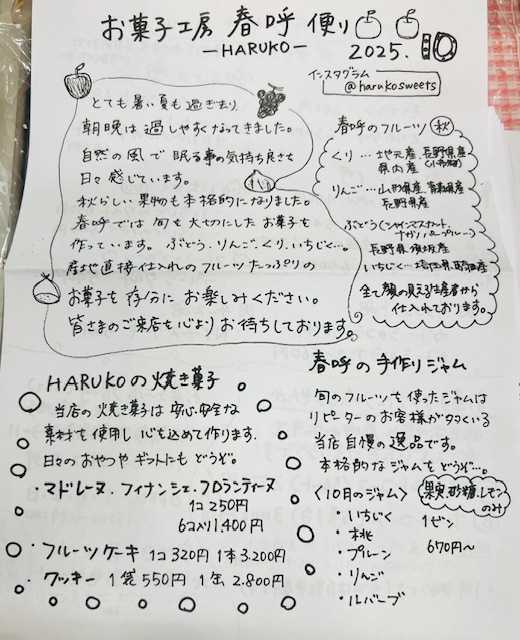 お菓子工房 春呼 便り
ーHARUKOー
2025. 10
インスタグラム
@harukosweets
とても暑い夏も過ぎ去り
朝晩は過しやすくなってきました。
自然の風で眠る事の気持ち良さを
日々感じています。
秋らしい果物も本格的になりました。
春呼では旬を大切にしたお菓子を
作っています。ぶどう、りんご、くり、いちじく…。
産地直接仕入れのフルーツたっぷりの
お菓子を存分にお楽しみください。
皆さまのご来店を心よりお待ちしております。
春呼のフルーツ 秋
くり…地元産、長野県産
県内産 (小布施)
りんご…山形県産、青森県産
長野県産
ぶどう(シャインマスカット、
ナガノパープル…)
長野県須坂産
いちじく…埼玉県騎西産
全て顔の見える生産者から
仕入れております。
HARUKOの焼き菓子
当店の焼き菓子は安心安全な
素材を使用し心を込めて作ります。
日々のおやつやギフトにもどうぞ。
・マドレーヌ、フィナンシェ、フロランティーヌ
1コ 250円
6コ入り1,400円
・フルーツケーキ 1コ 320円 1本 3,200円
・クッキー 1袋 550円 1缶 2,800円
春呼の手作りジャム
旬のフルーツを使ったジャムは
リピーターのお客様が多くいる
当店自慢の逸品です。
本格的なジャムをどうぞ…。
〈10月のジャム〉
果実、砂糖、レモン
のみ
・いちじく
・桃
・プルーン
・りんご
・ルバーブ
1ビン
670円〜